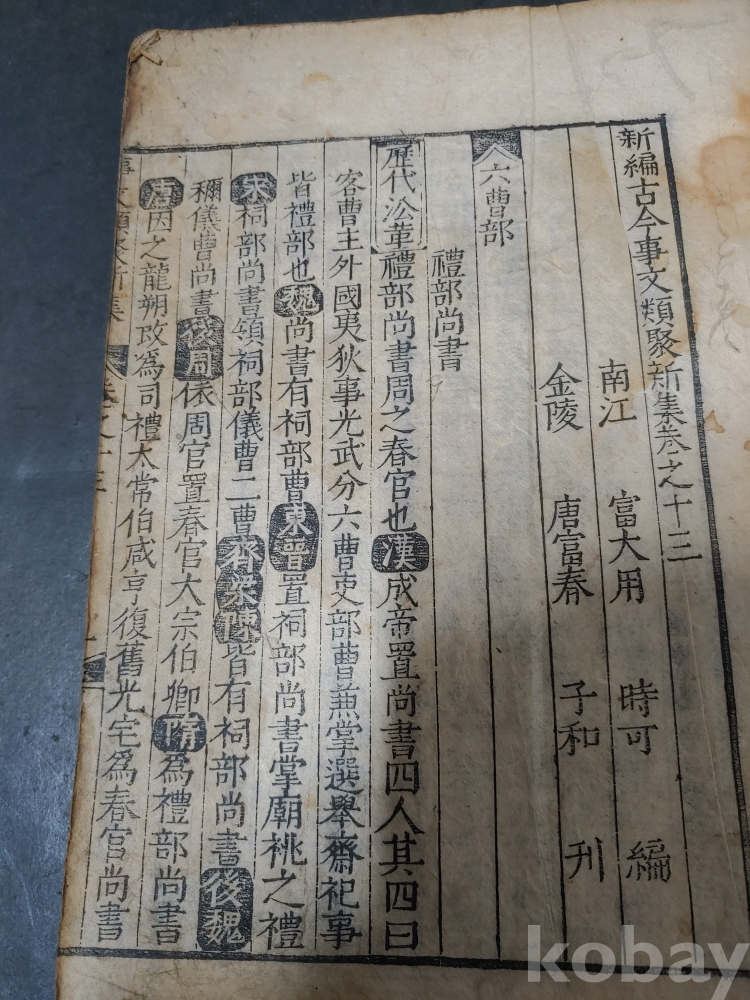 新編古今事文類聚新集卷之十三
南江 富大用 時可 編
金陵 唐富春 子和 刊
六曹部
禮部尚書
歷代㳂革 禮部尚書周之春官也漢成帝置尚書四人其四曰
客曹主外國夷狄事光武分六曹吏部曹兼掌選舉齋祀事
皆禮部也魏尚書有祠部曹東晉置祠部尚書掌廟祧之禮
宋祠部尚書領祠部儀曹二曹齊梁陳皆有祠部尚書後魏
稱儀曹尚書後周依周官置春官大宗伯卿隋為禮部尚書
唐因之龍朔改為司禮太常伯咸亨復舊光宅為春官尚書
事文類聚新集 卷之十三
kobay